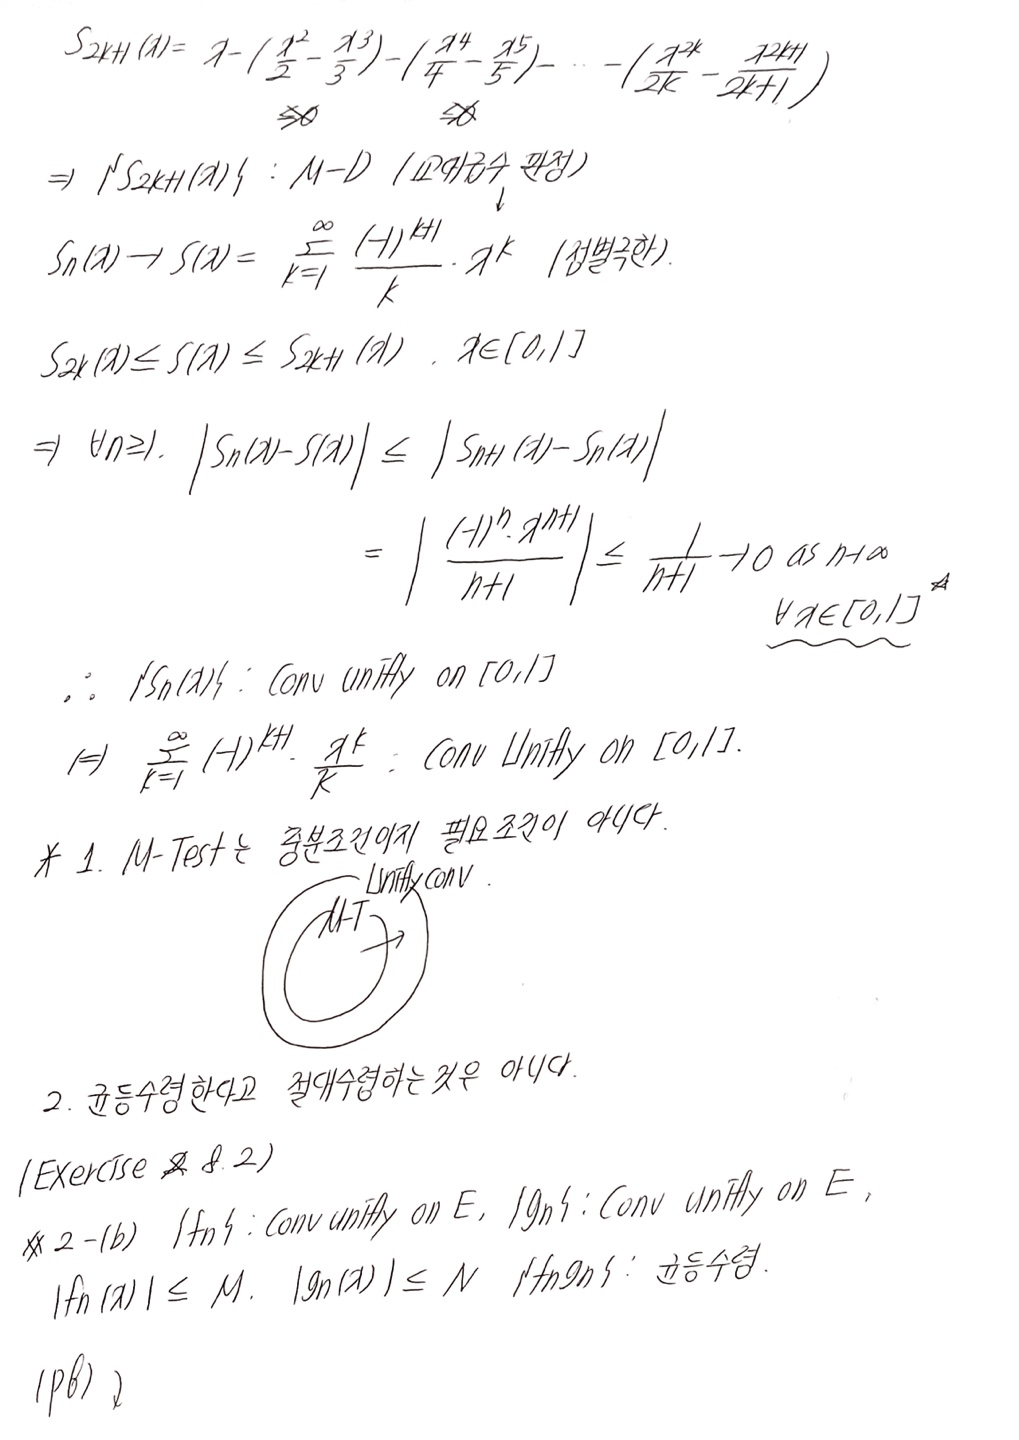 S₂ₖ₊₁(x) = x - (x²/2 - x³/3) - (x⁴/4 - x⁵/5) - ⋯ - (x²ᵏ/2k - x²ᵏ⁺¹/2k+1)
≥0 ≥0
⇒ {S₂ₖ₊₁(x)} : M-D (교대급수 판정)
Sₙ(x) → S(x) = ∑_{k=1}^{∞} (-1)ᵏ⁺¹/k · xᵏ (점별극한).
S₂ₖ(x) ≤ S(x) ≤ S₂ₖ₊₁(x) . x∈[0,1]
⇒ ∀n≥1. |Sₙ(x)-S(x)| ≤ |Sₙ₊₁(x)-Sₙ(x)|
= |(-1)ⁿ·xⁿ⁺¹/n+1| ≤ 1/n+1 → 0 as n→∞
∀x∈[0,1] ☆
∴ {Sₙ(x)} : Conv unifly on [0,1]
⇔ ∑_{k=1}^{∞} (-1)ᵏ⁺¹ · xᵏ/k : Conv Unifly on [0,1].
* 1. M-Test는 충분조건이지 필요조건이 아니다.
Unifly conv .
M-T
2. 균등수렴한다고 절대수렴하는 것은 아니다.
(Exercise 8.2)
※ 2-(b) {fn} : Conv unifly on E, {gn} : Conv unifly on E,
|fn(x)| ≤ M. |gn(x)| ≤ N {fngn} : 균등수렴.
(pf) ↓